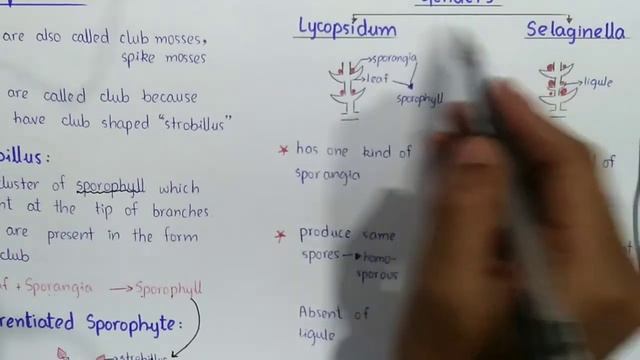 are also called club mosses,
spike mosses
are called club because
have club shaped "strobillus"
billus:
cluster of sporophyll which
at the tip of branches
are present in the form
club
+ Sporangia → Sporophyll
Sporophyte:
strobillus
Genders
Lycopsidum
sporangia
leaf
sporophyll
* has one kind of
sporangia
* produce same
spores → homo-
sporous
Absent of
ligule
Selaginella
ligule
of